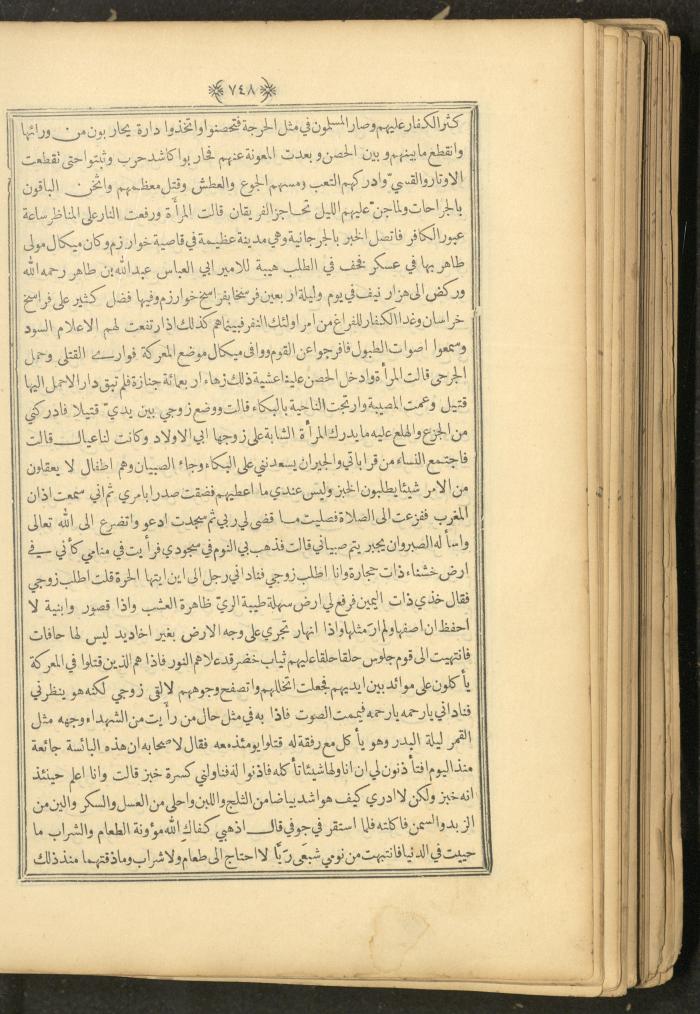 ﴿٧٤٨﴾
كثر الكفار عليهم وصار المسلمون في مثل الحرجة فتحصنوا واتخذوا دارة يحاربون من ورائها
وانقطع ما بينهم وبين الحصن وبعدت المعونة عنهم فحاربوا كاشد حرب وثبتوا حتى تقطعت
الاوتار والقسي وادركهم التعب ومسهم الجوع والعطش وقتل معظمهم واثخن الباقون
بالجراحات ولما جن عليهم الليل تحاجز الفريقان قالت المرأة ورفعت النار على المناظر ساعة
عبور الكافر فاتصل الخبر بالجرجانية وهي مدينة عظيمة في قاصية خوارزم وكان ميكال مولى
طاهر بها في عسكر فخف في الطلب هيبة للامير ابي العباس عبد الله بن طاهر رحمه الله
وركض الى هزار نيف في يوم وليلة اربعين فرسخا بفراسخ خوارزم وفيها فضل كثير على فراسخ
خراسان وغدا الكفار للفراغ من امر اولئك النفر فبينما هم كذلك اذ ارتفعت لهم الاعلام السود
وسمعوا اصوات الطبول فافرجوا عن القوم ووافى ميكال موضع المعركة فوارى القتلى وحمل
الجرحى قالت المرأة وادخل الحصن علينا عشية ذلك زهاء اربعمائة جنازة فلم تبق دار الا حمل اليها
قتيل وعمت المصيبة وارتجت الناحية بالبكاء قالت ووضع زوجي بين يدي قتيلا فادركني
من الجزع والهلع عليه ما يدرك المرأة الشابة على زوجها ابي الاولاد وكانت لنا عيال قالت
فاجتمع النساء من قراباتي والجيران يسعدنني على البكاء وجاء الصبيان وهم اطفال لا يعقلون
من الامر شيئا يطلبون الخبز وليس عندي ما اعطيهم فضقت صدرا بامري ثم اني سمعت اذان
المغرب ففزعت الى الصلاة فصليت ما قضى لي ربي ثم سجدت ادعو واتضرع الى الله تعالى
واسأله الصبر وان يجبر يتم صبياني قالت فذهب بي النوم في سجودي فرأيت في منامي كأني في
ارض خشناء ذات حجارة وانا اطلب زوجي فناداني رجل الى اين ايتها الحرة قلت اطلب زوجي
فقال خذي ذات اليمين فرفع لي ارض سهلة طيبة الري ظاهرة العشب واذا قصور وابنية لا
احفظ ان اصفها ولم ار مثلها واذا انهار تجري على وجه الارض بغير اخاديد ليس لها حافات
فانتهيت الى قوم جلوس حلقا حلقا عليهم ثياب خضر قد علاهم النور فاذا هم الذين قتلوا في المعركة
يأكلون على موائد بين ايديهم فجعلت اتخللهم واتصفح وجوههم لالقى زوجي لكنه هو ينظرني
فناداني يا رحمه يا رحمه فيممت الصوت فاذا به في مثل حال من رأيت من الشهداء وجهه مثل
القمر ليلة البدر وهو يأكل مع رفقة له قتلوا يومئذ معه فقال لاصحابه ان هذه البائسة جائعة
منذ اليوم افتأذنون لي ان اناولها شيئا تأكله فاذنوا له فناولني كسرة خبز قالت وانا اعلم حينئذ
انه خبز ولكن لا ادري كيف هو اشد بياضا من الثلج واللبن واحلى من العسل والسكر والين من
الزبد والسمن فاكلته فلما استقر في جوفي قال اذهبي كفاك الله مؤونة الطعام والشراب ما
حييت في الدنيا فانتبهت من نومي شبعى ريا لا احتاج الى طعام ولا شراب وما ذقتهما منذ ذلك